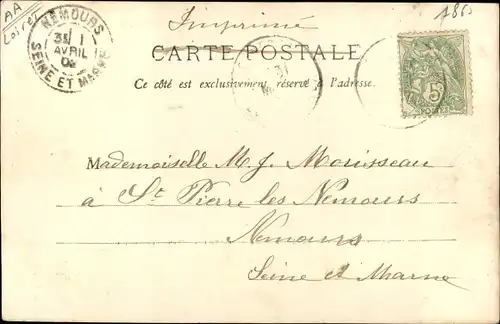 AA
Loiret
NEMOURS
SEINE ET MARNE
AVRIL
Imprimé
CARTE POSTALE
Ce côté est exclusivement réservé à l'adresse.
5
Mademoiselle M. J. Morisseau
à St Pierre les Nemours
Nemours
Seine et Marne